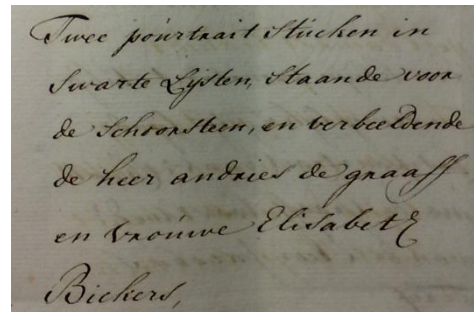 Twee poúrtrait stúcken in
swarte Lijsten, staande voor
de schoorsteen, en verbeeldende
de heer andries de graaff
en vroúwe Elisabeth
Bickers,